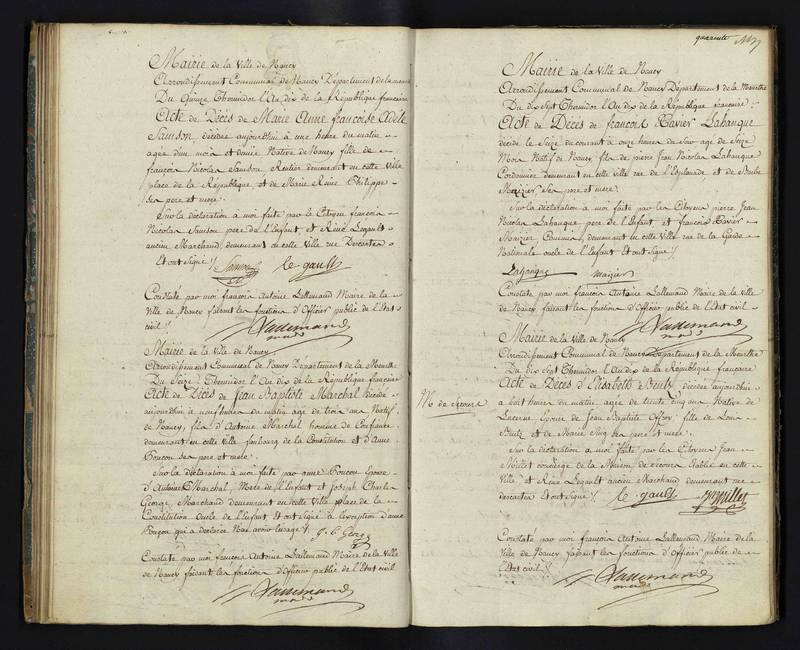 Mairie de la Ville de Nancy
Arrondissement Communal de Nancy Département de la meurthe
Du Quinze Thermidor l'An dix de la République française
Acte de Décès de Marie Anne françoise Adèle
Samson, décédée aujourd'hui à une heure du matin
agée d'un mois et demie Native de Nancy fille de
françois Nicolas Samson Rentier demeurant en cette Ville
place de la République, et de Marie Reine Philippe
ses pere et mere.
Sur la déclaration à moi faite par le Citoyen françois
Nicolas Samson pere de l'Enfant et Réné Legault
ancien Marchand, demeurant en cette Ville rue Descartes
Et ont Signé /. Samson le gault
Constaté par moi françois Antoine Lallemand Maire de la
Ville de Nancy faisant les fonctions d'Officier public de l'Etat
civil /. Lallemand
maire
Mairie de la Ville de Nancy
Arrondissement Communal de Nancy Département de la Meurthe
Du Seize Thermidor l'An dix de la République française
Acte de Décès de Jean Baptiste Marchal décédé
aujourd'hui à neuf heures du matin agé de trois ans Natif
de Nancy, fils d'Antoine Marchal homme de Confiance
demeurant en cette Ville faubourg de la Constitution et d'Anne
Poucon ses pere et mere.
Sur la déclaration à moi faite par anne Poucon Epouse
d'Antoine Marchal, Mere de l'Enfant et Joseph Charles
George, Marchand demeurant en cette Ville place de la
Constitution Oncle de l'Enfant Et ont signé à l'exception d'anne
Poucon qui a déclaré Ne savoir l'usage /. G. C. George
Constaté par moi françois Antoine Lallemand Maire de la Ville
de Nancy faisant les fonctions d'Officier public de l'Etat civil
Lallemand
maire
quarante
Mairie de la Ville de Nancy
Arrondissement Communal de Nancy Département de la Meurthe
Du dix Sept Thermidor l'An dix de la République française
Acte de Décès de françois Xavier Lahanque
décédé le Seize du courant à onze heures du Soir agé de Seize
Mois Natif de Nancy, fils de pierre Jean Nicolas Lahanque
Cordonnier demeurant en cette Ville rue de l'Esplanade, et de Barbe
Marizier Ses pere et mere.
Sur la déclaration à moi faite par les Citoyens pierre Jean
Nicolas Lahanque pere de l'Enfant et françois Xavier
Marizier Commis, demeurant en cette Ville rue de la Garde
Nationale oncle de l'Enfant Et ont Signé /.
Lahanque marizier
Constaté par moi françois Antoine Lallemand Maire de la Ville
de Nancy faisant les fonctions d'Officier public de l'Etat civil
Lallemand
maire
Mairie de la Ville de Nancy
Arrondissement Communal de Nancy Département de la Meurthe
Du dix Sept Thermidor l'An dix de la République francaise
M de Secours
Acte de Décès d'Elisabeth décédée aujourd'hui
à huit heures du matin, agée de trente cinq ans Native de
Lucerne Epouse de Jean Baptiste fille de
et de Marie ses pere et mere.
Sur la déclaration à moi faite par les Citoyens Jean
Millet concierge de la Maison de secours Etablie en cette
Ville et Réné Legault ancien Marchand demeurant rue
descartes Et ont Signé /. le gault Millet
Constaté par moi françois Antoine Lallemand Maire de la
Ville de Nancy faisant les fonctions d'Officier public de
l'Etat civil /. Lallemand
maire